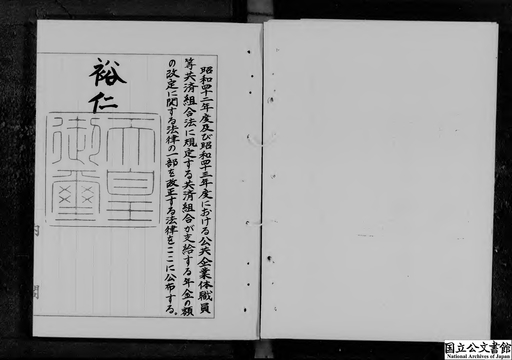 昭和四十二年度及び昭和四十三年度における公共企業体職員
等共済組合法に規定する共済組合が支給する年金の額
の改定に関する法律の一部を改正する法律をここに公布する。
裕仁
天皇
御璽
国立公文書館
National Archives of Japan